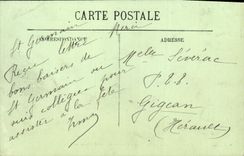 CARTE POSTALE
CORRESPONDANCE
ADRESSE
St Germain
Merci
Reçu lettre
bons baisers de
St Germain ou
suis collègue pour
assister à la fête
Irma
Melle Sévérac
P.E.E.
Gigean
(Hérault)